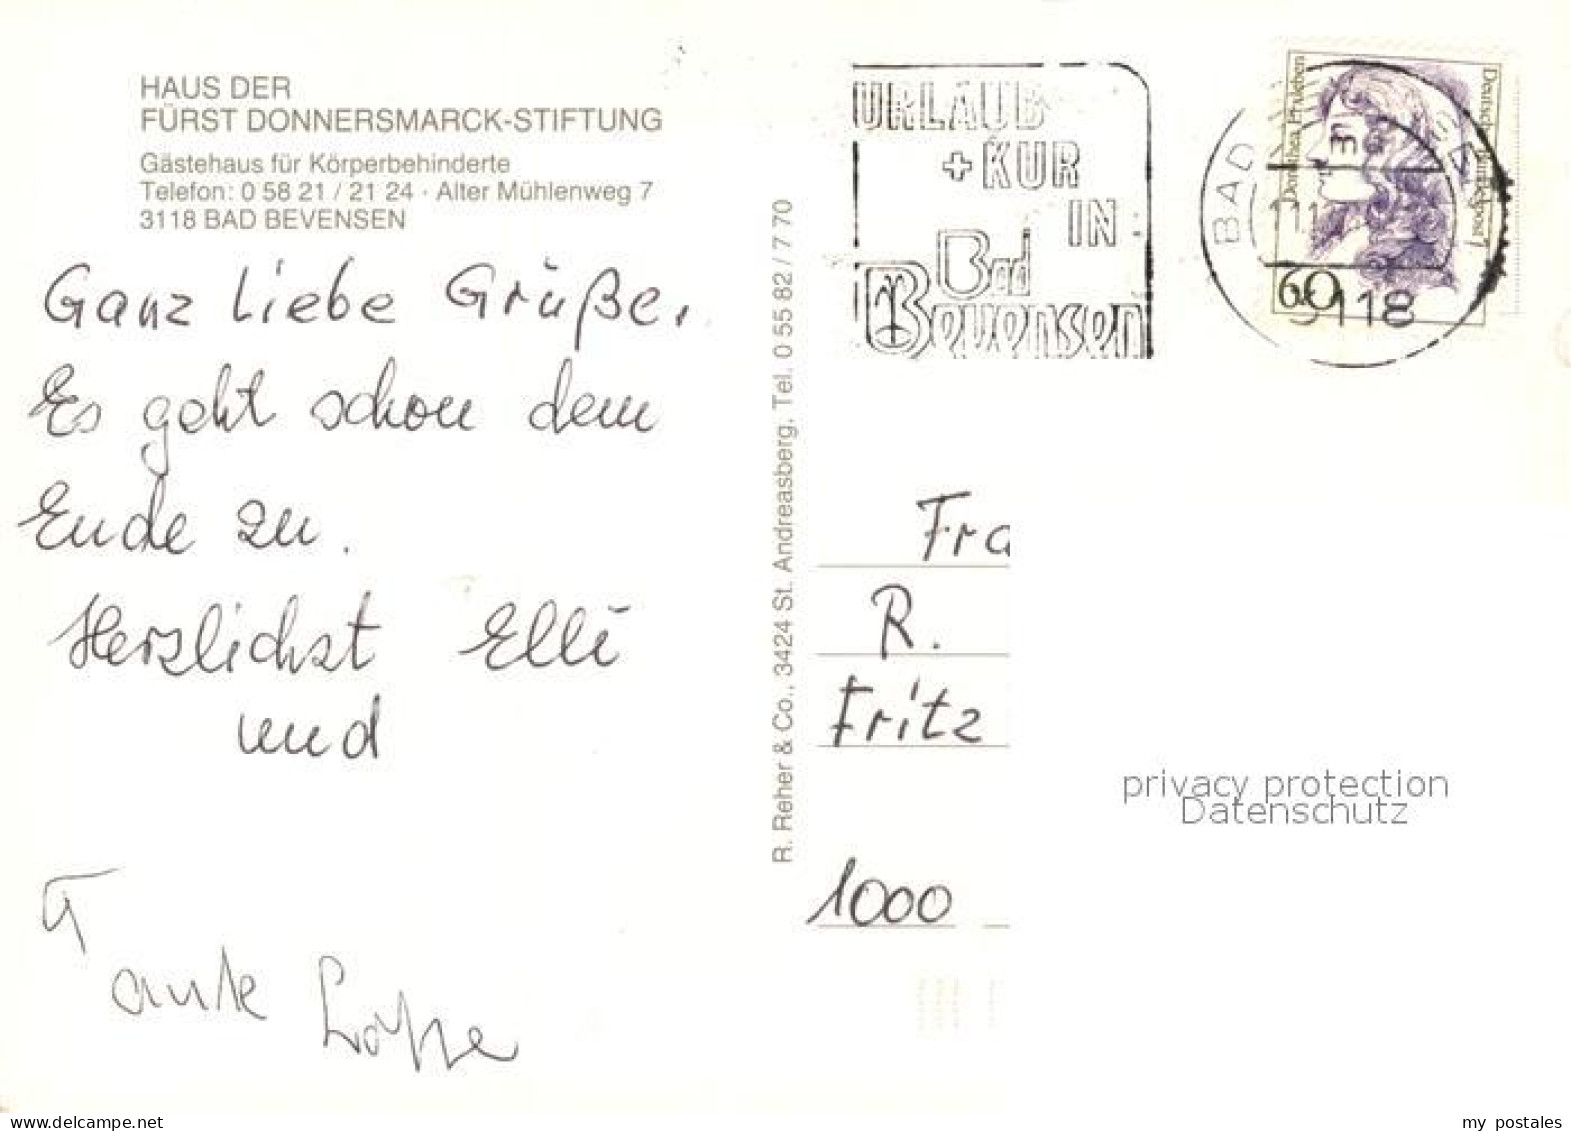 HAUS DER
FÜRST DONNERSMARCK-STIFTUNG
Gästehaus für Körperbehinderte
Telefon: 0 58 21 / 21 24 · Alter Mühlenweg 7
3118 BAD BEVENSEN
Ganz liebe Grüße,
Es geht schon dem
Ende zu.
Herzlichst Elli
und
Tante
R. Reher & Co., 3424 St. Andreasberg, Tel. 0 55 82 / 7 70
URLAUB
+ KUR
IN
Bad
Bevensen
BAD
3118
Dorothea Erxleben
Deutsche Bundespost
60
Fra
R.
Fritz
1000
privacy protection
Datenschutz
delcampe.net
my_postales